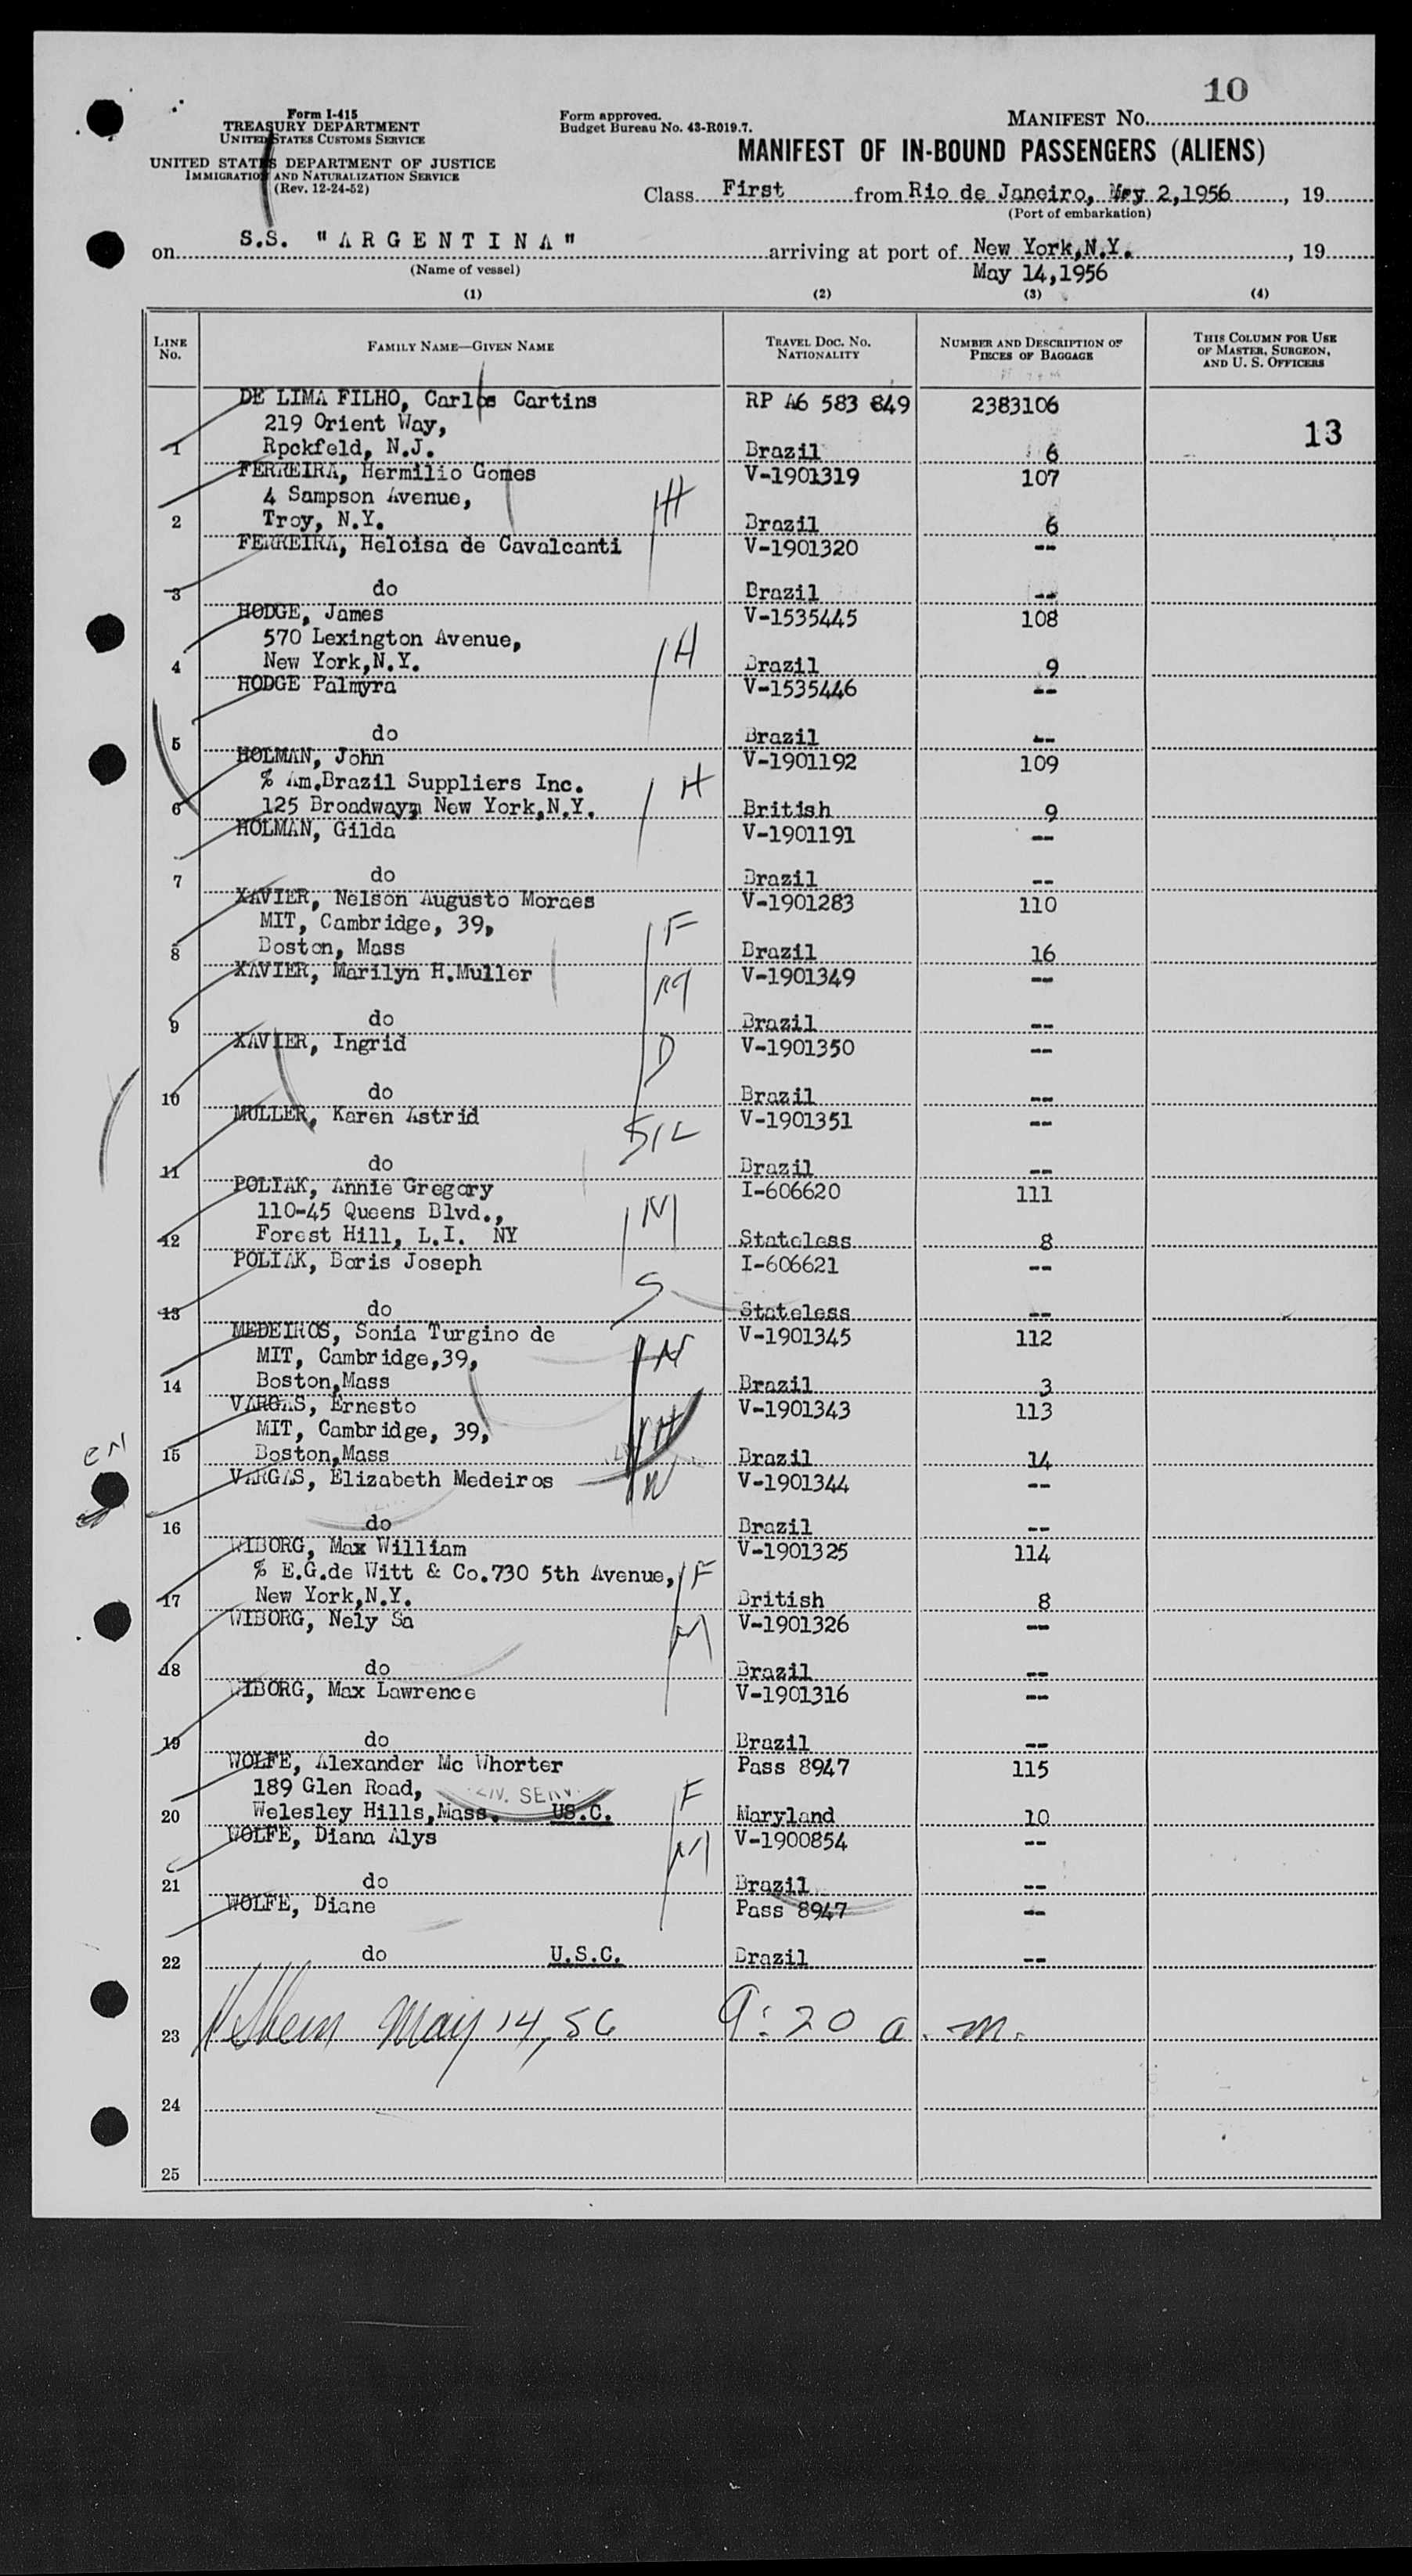 10
Form I-415
TREASURY DEPARTMENT
UNITED STATES CUSTOMS SERVICE
UNITED STATES DEPARTMENT OF JUSTICE
IMMIGRATION AND NATURALIZATION SERVICE
(Rev. 12-24-52)
Form approved.
Budget Bureau No. 43-R019.7.
MANIFEST NO.
MANIFEST OF IN-BOUND PASSENGERS (ALIENS)
Class First from Rio de Janeiro, May 2,1956, 19
(Port of embarkation)
on S.S. "ARGENTINA" arriving at port of New York,N.Y., 19
(Name of vessel) May 14,1956
(1) (2) (3) (4)
LINE NO. FAMILY NAME—GIVEN NAME TRAVEL DOC. NO. NATIONALITY NUMBER AND DESCRIPTION OF PIECES OF BAGGAGE THIS COLUMN FOR USE OF MASTER, SURGEON, AND U. S. OFFICERS
DE LIMA FILHO, Carlos Cartins RP A6 583 849 2383106
219 Orient Way, 13
1 Rpckfeld, N.J. Brazil 6
FERREIRA, Hermilio Gomes V-1901319 107
4 Sampson Avenue, H
2 Troy, N.Y. Brazil 6
FERREIRA, Heloisa de Cavalcanti V-1901320 --
3 do Brazil --
HODGE, James V-1535445 108
570 Lexington Avenue, H
4 New York,N.Y. Brazil 9
HODGE Palmyra V-1535446 --
5 do Brazil --
HOLMAN, John V-1901192 109
% Am.Brazil Suppliers Inc. H
6 125 Broadwaym New York,N.Y. British 9
HOLMAN, Gilda V-1901191 --
7 do Brazil --
XAVIER, Nelson Augusto Moraes V-1901283 110
MIT, Cambridge, 39, F
8 Boston, Mass Brazil 16
XAVIER, Marilyn H.Muller M V-1901349 --
9 do Brazil --
XAVIER, Ingrid D V-1901350 --
10 do Brazil --
MULLER, Karen Astrid V-1901351 --
11 do Brazil --
POLIAK, Annie Gregory I-606620 111
110-45 Queens Blvd., M
12 Forest Hill, L.I. NY Stateless 8
POLIAK, Boris Joseph S I-606621 --
13 do Stateless --
MEDEIROS, Sonia Turgino de V-1901345 112
MIT, Cambridge,39,
14 Boston,Mass Brazil 3
VARGAS, Ernesto V-1901343 113
MIT, Cambridge, 39, H
15 Boston,Mass Brazil 14
VARGAS, Elizabeth Medeiros W V-1901344 --
16 do Brazil --
WIBORG, Max William V-1901325 114
% E.G.de Witt & Co.730 5th Avenue, F
17 New York,N.Y. British 8
WIBORG, Nely Sa M V-1901326 --
18 do Brazil --
WIBORG, Max Lawrence V-1901316 --
19 do Brazil --
WOLFE, Alexander Mc Whorter Pass 8947 115
189 Glen Road, F
20 Welesley Hills,Mass. US.C. Maryland 10
WOLFE, Diana Alys M V-1900854 --
21 do Brazil --
WOLFE, Diane Pass 8947 --
22 do U.S.C. Brazil --
23 May 14, 56 9:20 a.m.
24
25